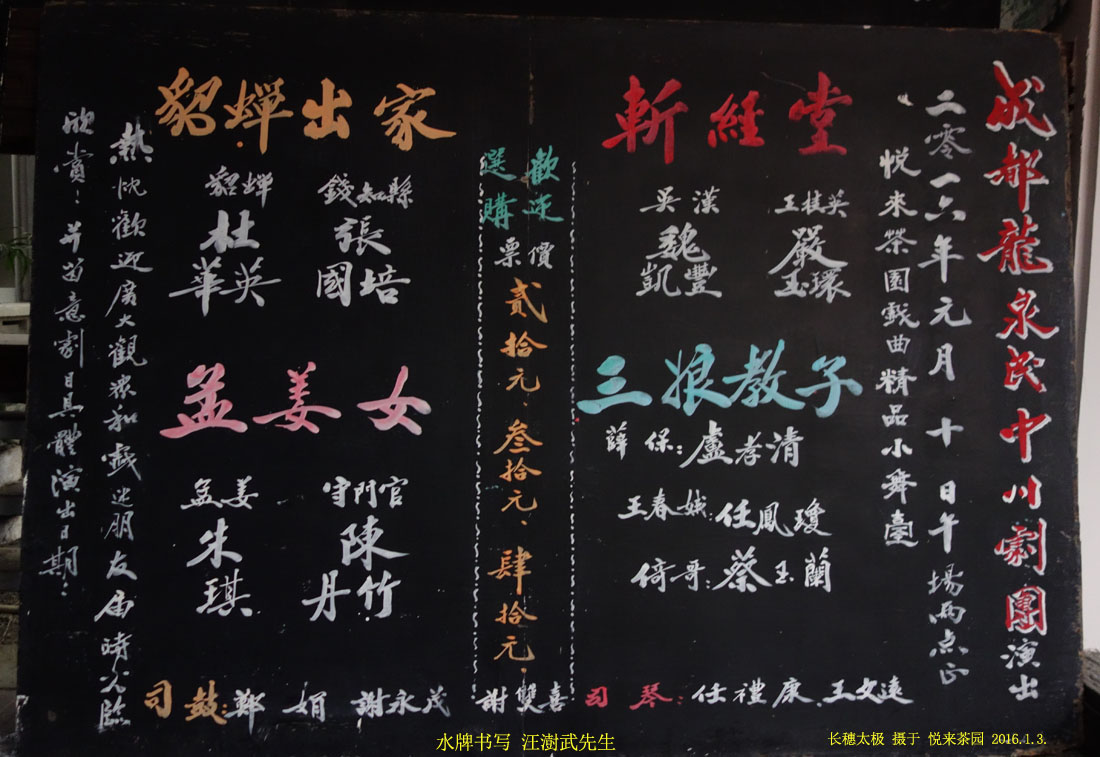 成都龍泉民中川劇團演出
二零一六年元月十日午場兩点正
悦來茶園戲曲精品小舞臺
斬經堂
王桂英
嚴玉環
吳漢
魏凱豐
三娘教子
薛保：盧孝清
王春娥：任鳳瓊
倚哥：蔡玉蘭
歡迎
選購
票價
貳拾元、叁拾元、肆拾元．
貂蟬出家
錢知縣
張國培
貂蟬
杜華英
孟姜女
守門官
陳丹竹
孟姜
朱琪
熱忱歡迎廣大觀衆和戲迷朋友届時光臨
欣賞！并留意劇目具體演出日期．
司鼓：鄭娟 謝永茂 謝雙喜
司琴：任禮康．王文遠
水牌书写 汪澍武先生
长穗太极 摄于 悦来茶园 2016.1.3.